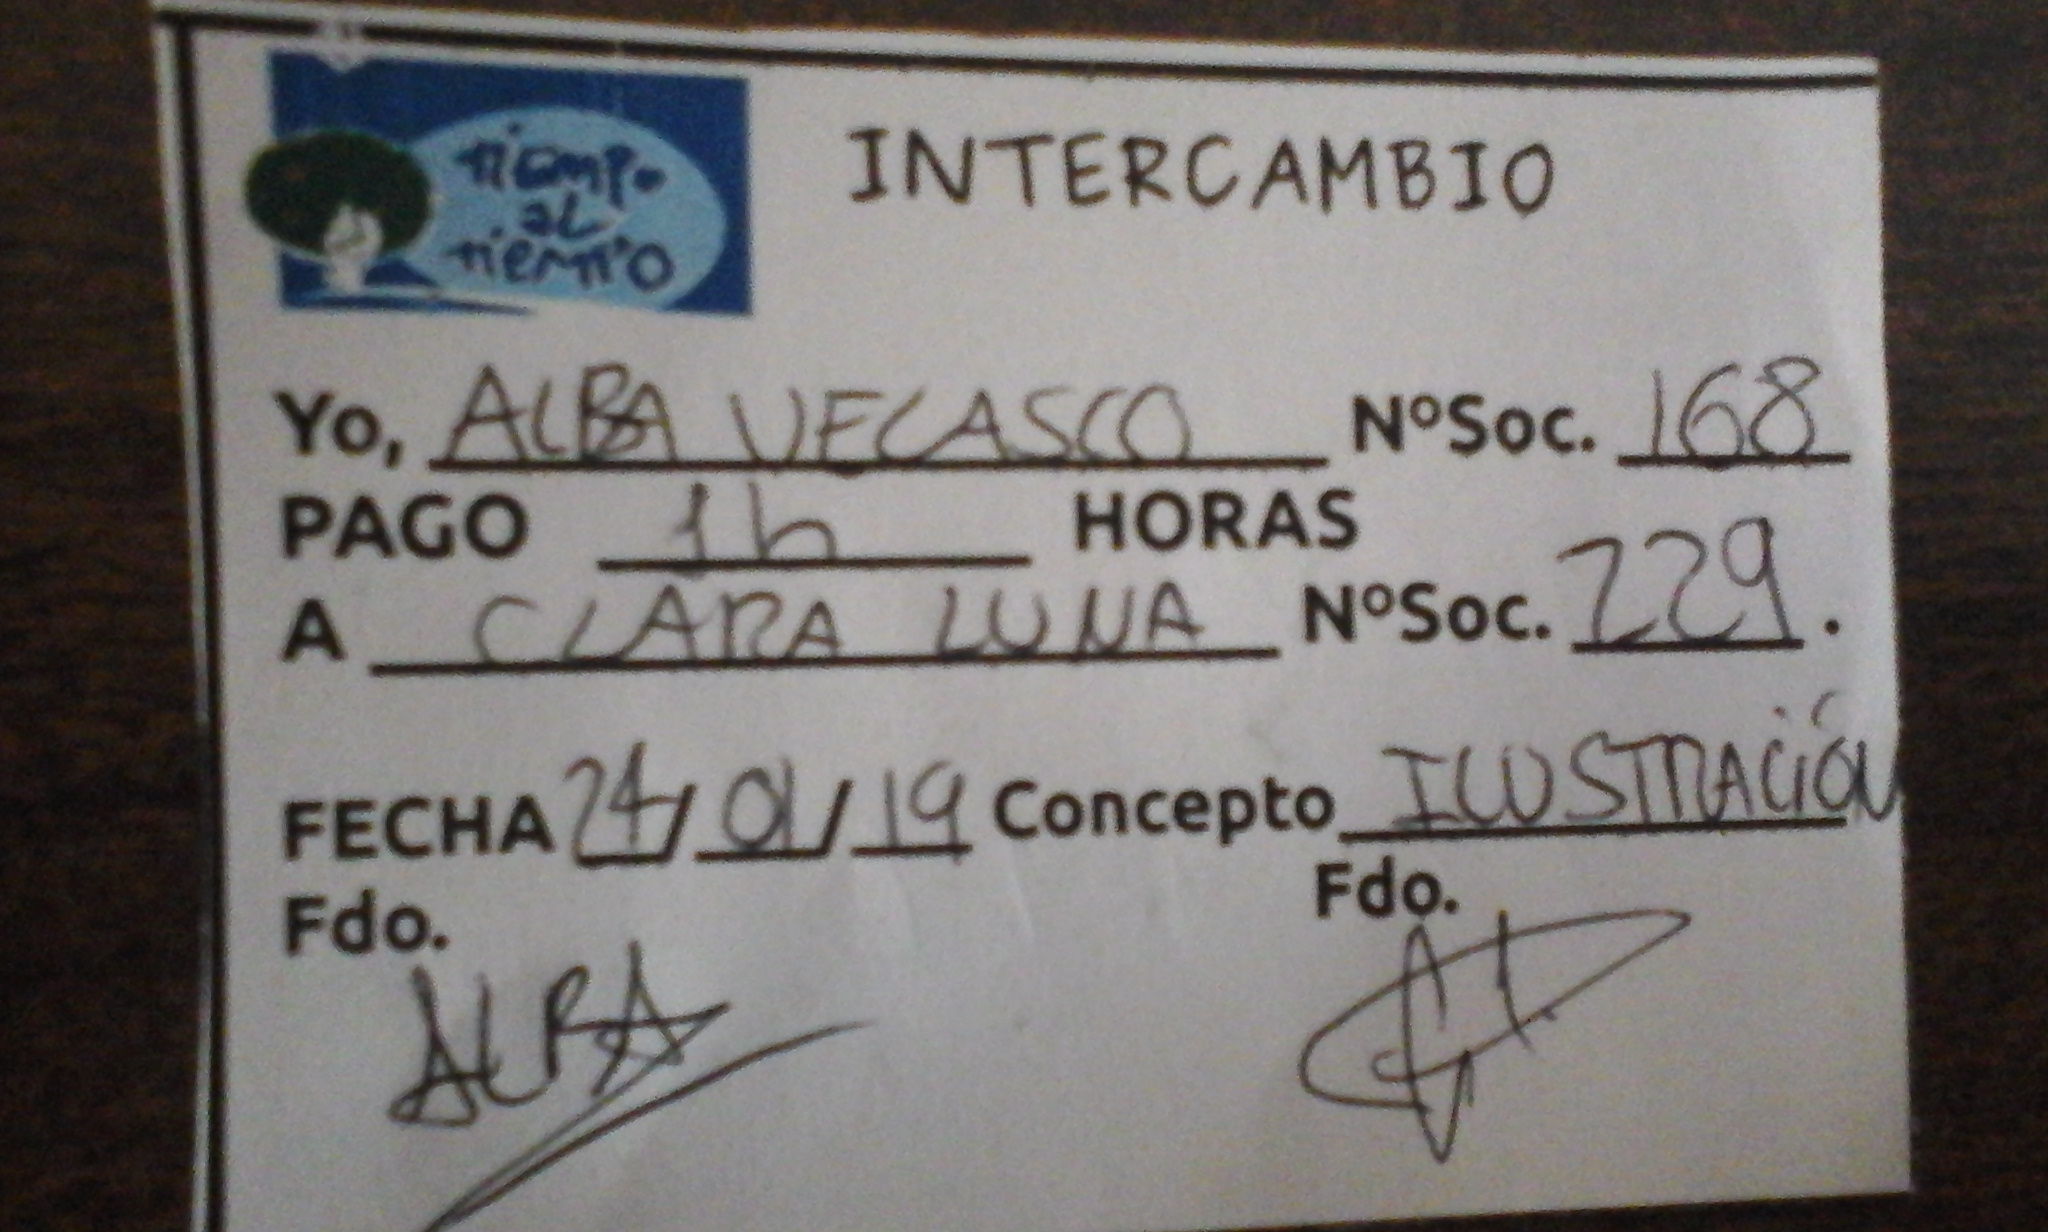 tiempo
al
tiempo
INTERCAMBIO
Yo, ALBA VELASCO NºSoc. 168
PAGO 1h HORAS
A CLARA LUNA NºSoc. 229.
FECHA 24/01/19 Concepto ILUSTRACIÓN
Fdo. Fdo.
ALBA